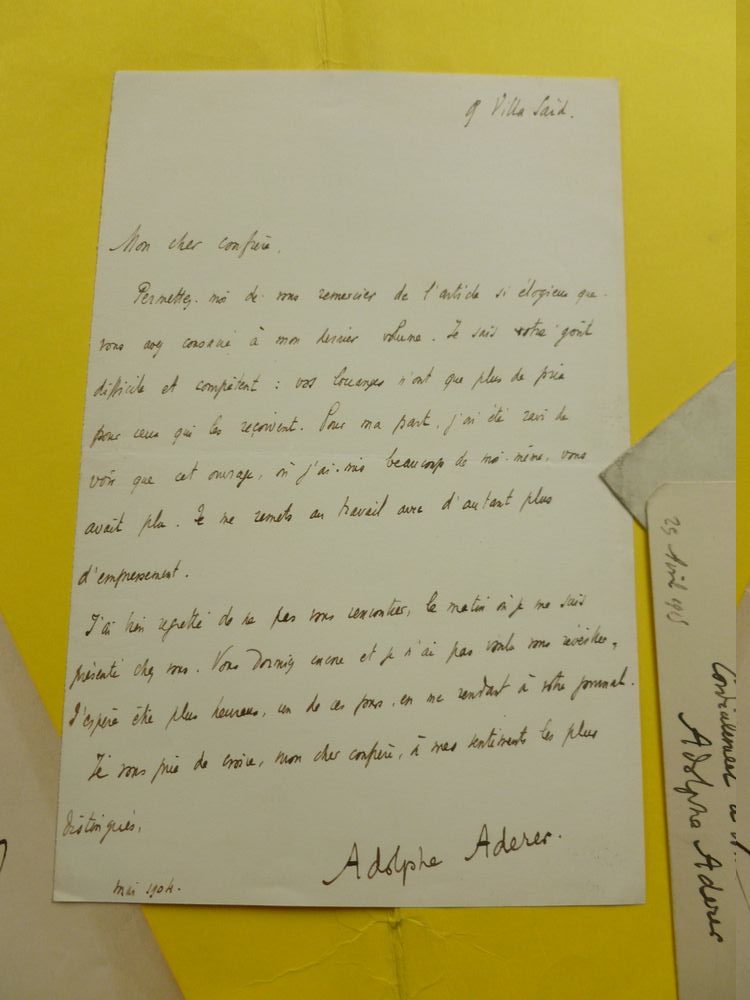 9 Villa Saïd.
Mon cher confrère,
Permettez-moi de vous remercier de l'article si élogieux que
vous avez consacré à mon dernier volume. Je sais votre goût
difficile et compétent : vos louanges n'ont que plus de prix
pour ceux qui les reçoivent. Pour ma part, j'ai été ravi de
voir que cet ouvrage, où j'ai mis beaucoup de moi-même, vous
avait plu. Je me remets au travail avec d'autant plus
d'empressement.
J'ai bien regretté de ne pas vous rencontrer, le matin où je me suis
présenté chez vous. Vous dormiez encore et je n'ai pas voulu vous réveiller.
J'espère être plus heureux, un de ces jours, en me rendant à votre journal.
Je vous prie de croire, mon cher confrère, à mes sentiments les plus
distingués.
Adolphe Aderer.
mai 1904.
25 Avril 1913
Cordialement à V.
Adolphe Aderer